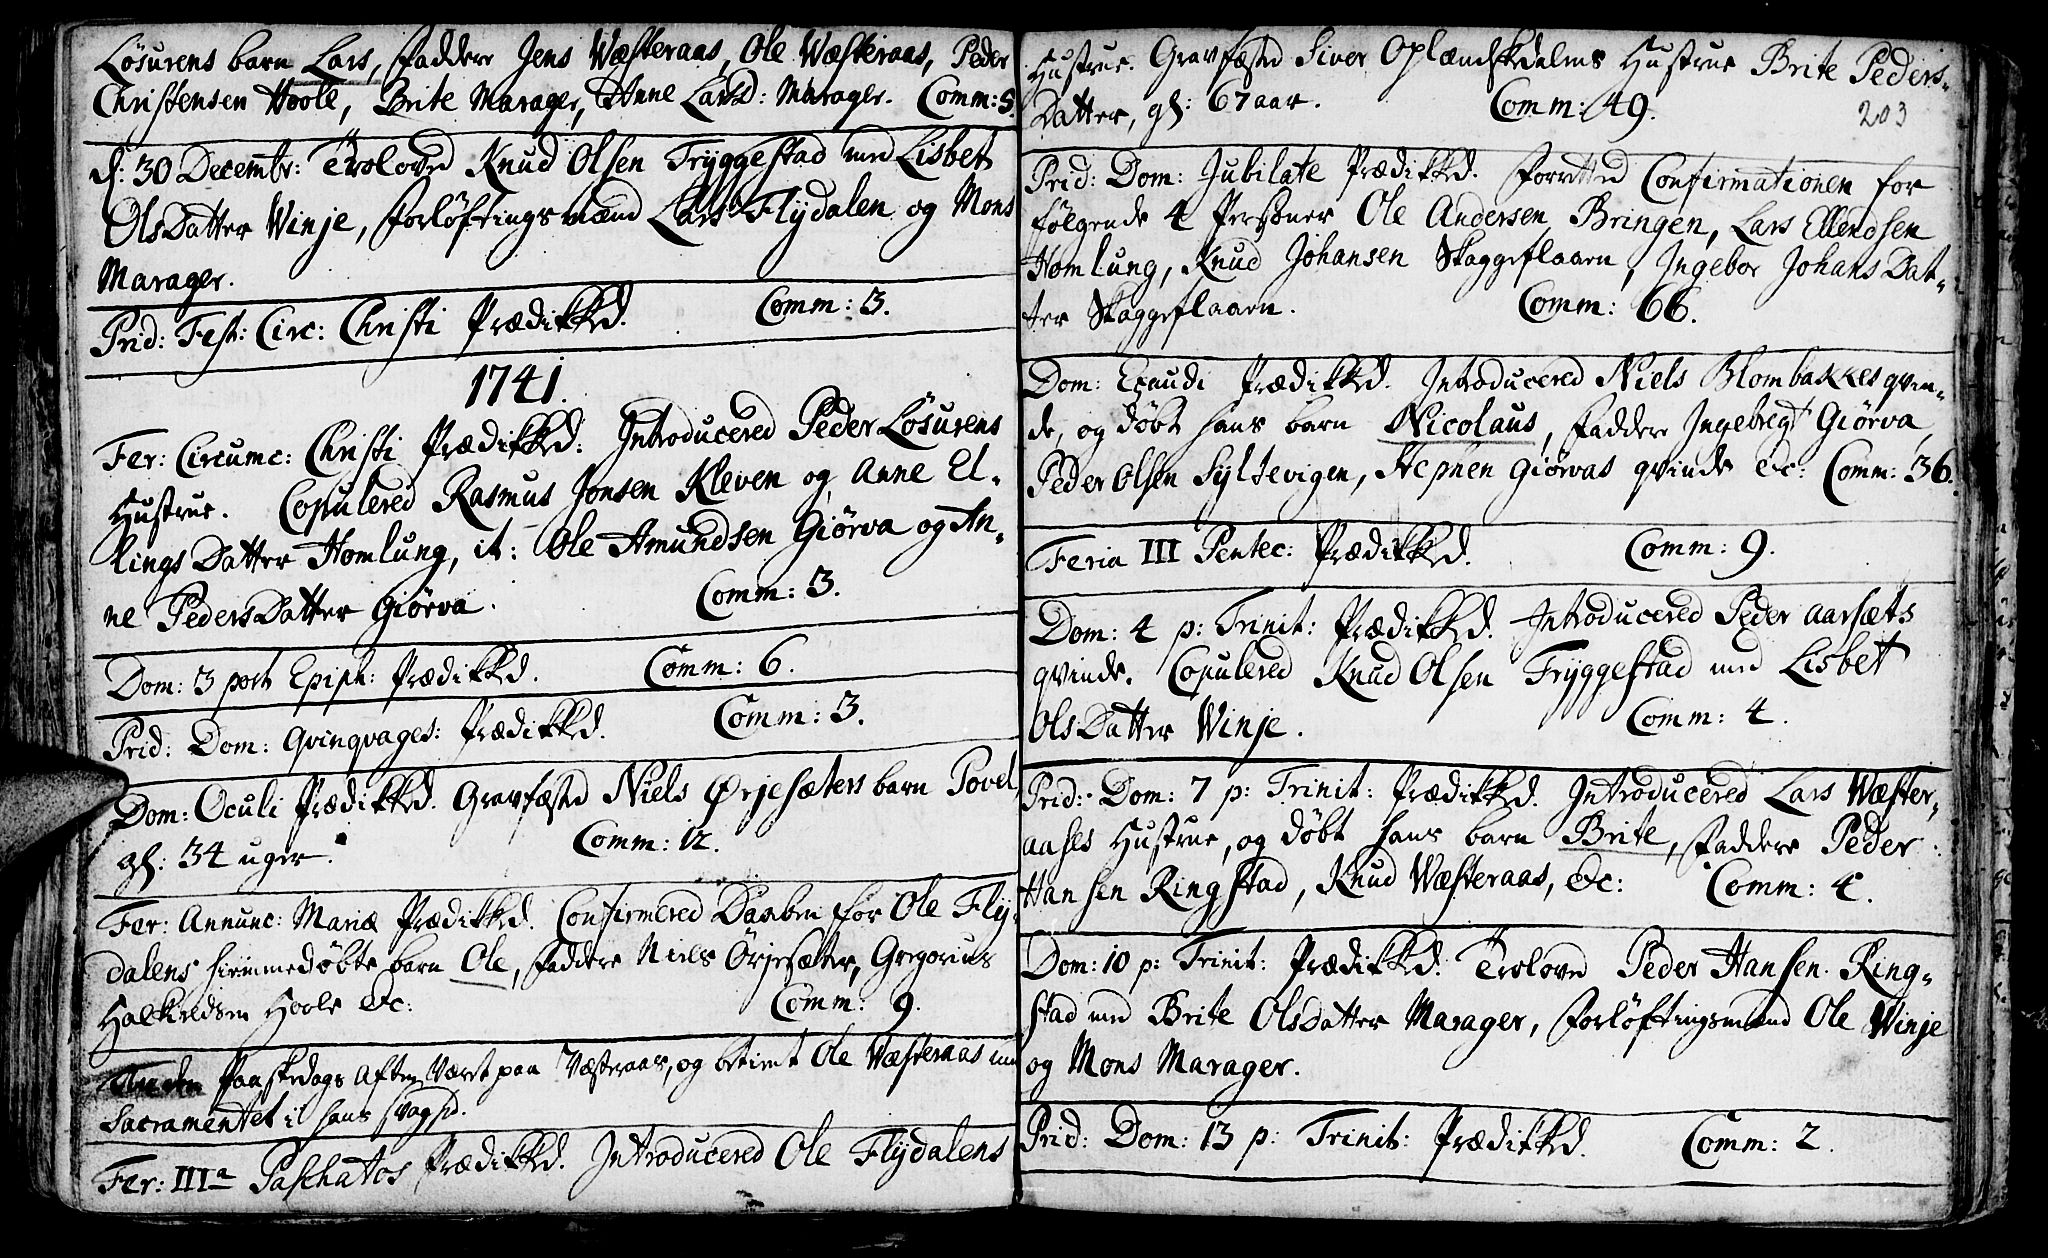 Løsurens barn Lars, Faddere Jens Wæsteraas, Ole Wæsteraas, Peder
Christensen Hoole, Brite Marager, Anne Larsd: Marager. Comm: 5.
d: 30 Decembr: Troloved Knud Olsen Tryggestad med Lisbet
OlsDatter Winje, Forløftningsmænd Lars Flydalen og Mons
Marager.
Prid: Fest: Circ: Christi Prædikked. Comm: 3.
1741.
Fer: Circumc: Christi Prædikked. Introducered Peder Løsurens
Hustrue. Copulered Rasmus Jonsen Kleven og Anne El-
lingsDatter Homlung, it: Ole Amundsen Giørva og An-
ne PedersDatter Giørva. Comm: 3.
Dom: 3 post Epiph: Prædikked. Comm: 6.
Prid: Dom: Qvinqvages: Prædikked. Comm: 3.
Dom: Oculi Prædikked. Gravfæsted Niels Ørjesæters barn Povel
gl: 34 uger. Comm: 12.
Fer: Annunc: Mariæ Prædikked. Confirmered Daaben for Ole Fly-
dalens hiemmedøbte barn Ole, Faddere Niels Ørjesæter, Gregorius
Halkieldsen Hoole &c: Comm: 9.
Paaskedags Aften Været paa Væsteraas, og betient Ole Wæsteraas med
Sacramentet i hans svaghed.
Fer: IIIa Paschatos Prædikked. Introducered Ole Flydalens
Hustrue. Gravfæsted Siver Oplændskedalens Hustrue Brite Peders-
Datter, gl: 67 aar. Comm: 49.
203
Prid: Dom: Jubilate Prædikked. Forretted Confirmationen for
følgende 4 Persohner Ole Andersen Bringen, Lars Ellendsen
Homlung, Knud Johansen Skaggeflaaen, Ingebor JohansDat-
ter Skaggeflaaen. Comm: 66.
Dom: Exaudi Prædikked. Introducered Niels Blombakkes qvin-
de, og døbt hans barn Nicolaus, Faddere Ingebregt Giørva,
Peder Olsen Syltevigen, Stephen Giørvas qvinde &c: Comm: 36.
Feria III Pentec: Prædikked. Comm: 9.
Dom: 4 p: Trinit: Prædikked. Introducered Peder Aarsæts
qvinde. Copulered Knud Olsen Tryggestad med Lisbet
OlsDatter Winje. Comm: 4.
Prid: Dom: 7 p: Trinit: Prædikked. Introducered Lars Wæster-
aases Hustrue, og døbt hans barn Brite, Faddere Peder
Hansen Ringstad, Knud Wæsteraas, &c: Comm: 4.
Dom: 10 p: Trinit: Prædikked. Troloved Peder Hansen Ring-
stad med Brite OlsDatter Marager, Forløftningsmænd Ole Winje
og Mons Marager.
Prid: Dom: 13 p: Trinit: Prædikked. Comm: 2.